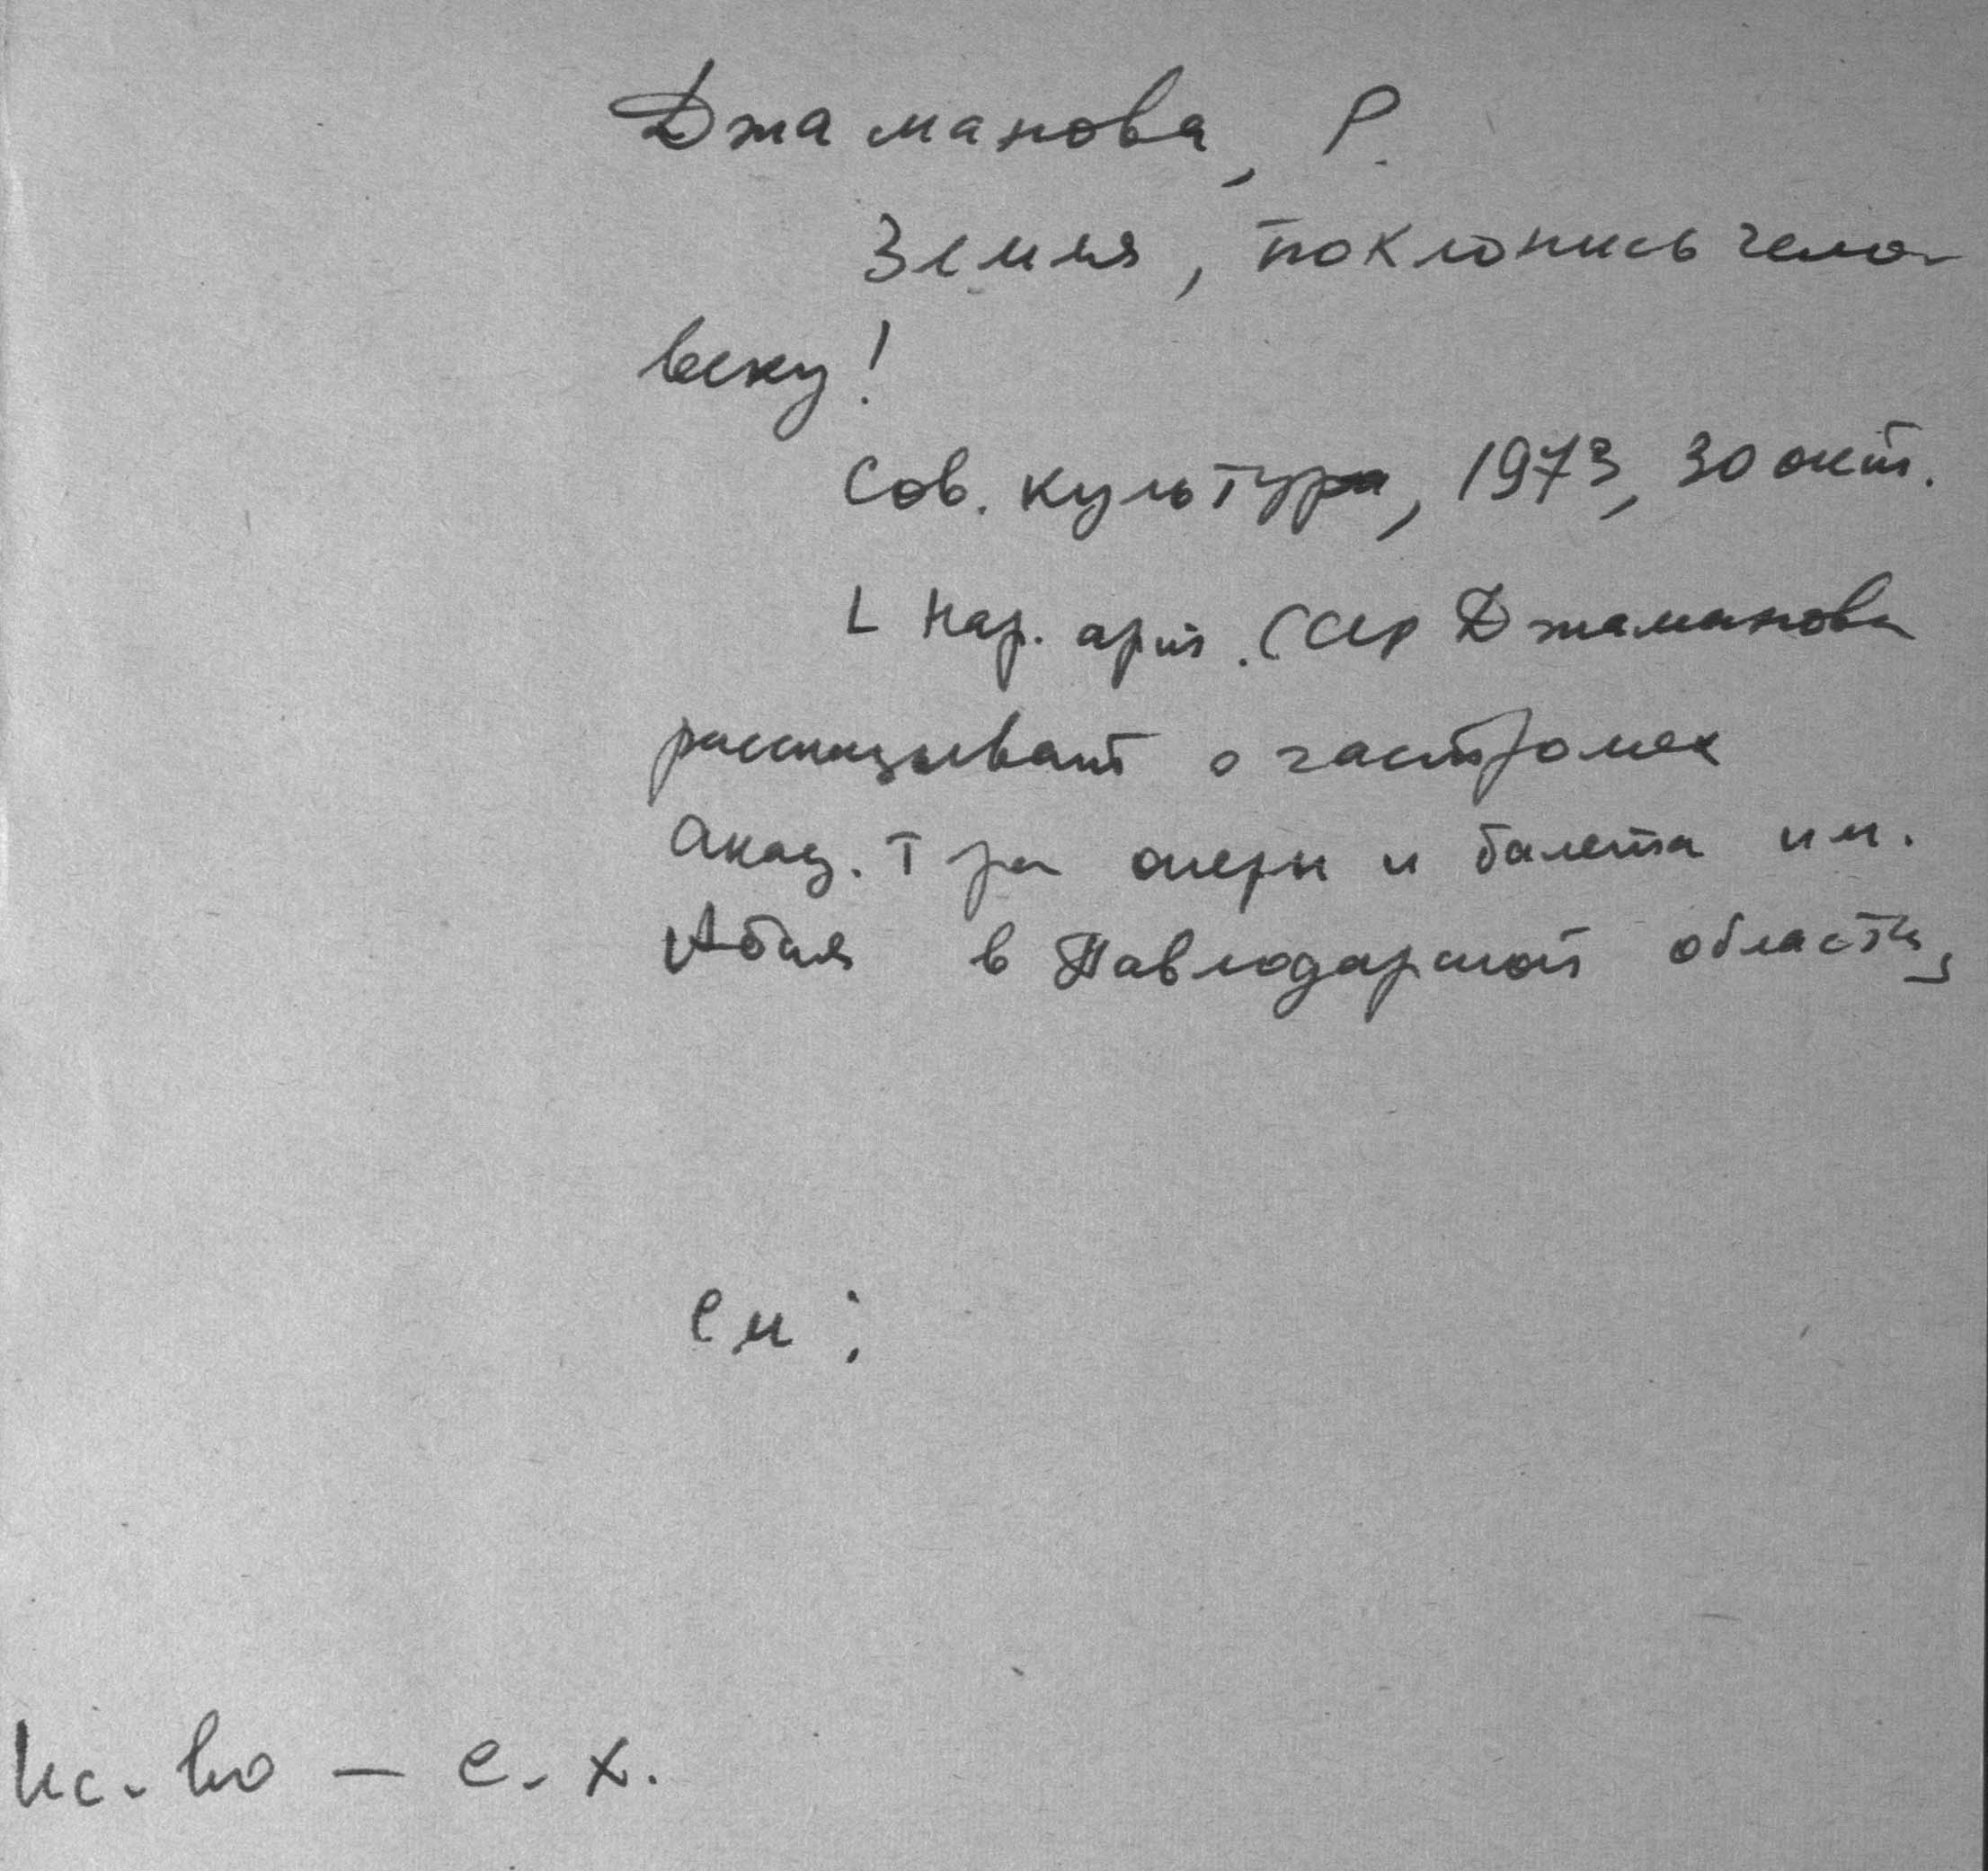 Джаманова, Р.
Земля, поклонись чело-
веку!
Сов. культура, 1973, 30 окт.
L Нар. арт. ССР Джаманова
рассказывает о гастролях
Акад. т-ра оперы и балета им.
Абая в Павлодарской области
см:
Ис-во - с. х.